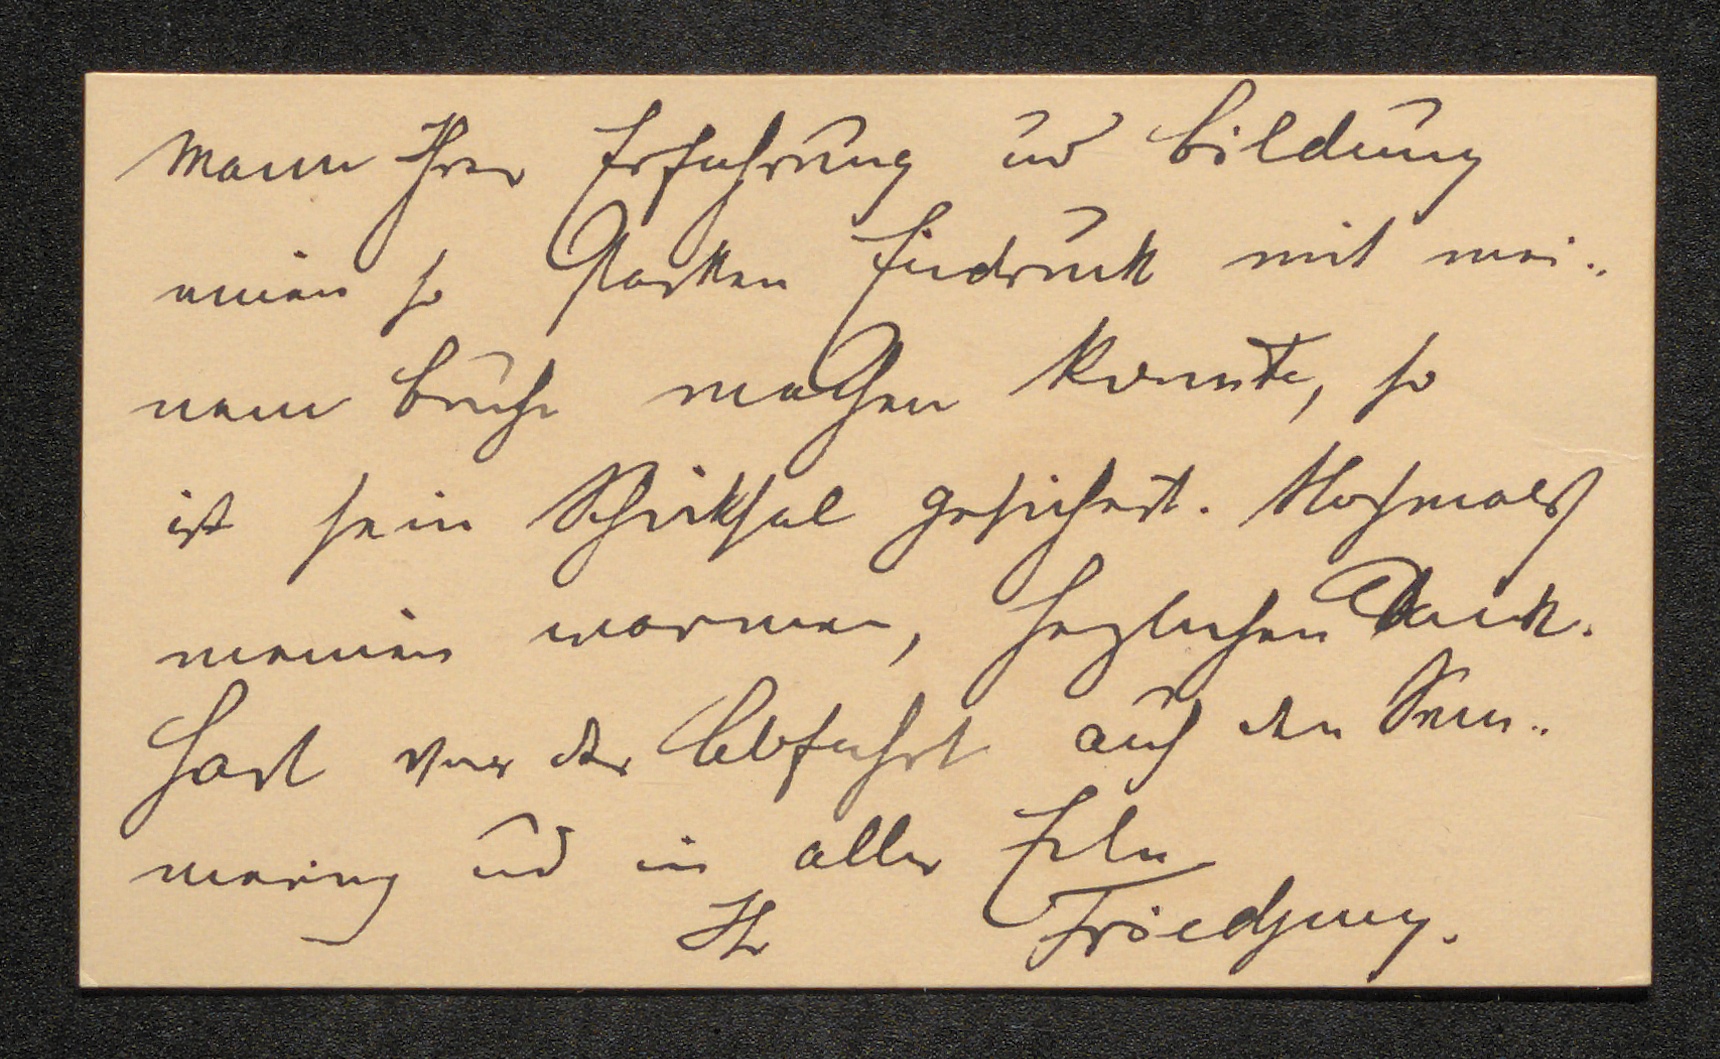 Mann Ihrer Erfahrung und Bildung
einen so starken Eindruck mit mei-
nem Buche machen konnte, so
ist sein Schicksal gesichert. Nochmals
meinen warmen, herzlichen Dank.
Hart vor der Abfahrt auf den Sem-
mering und in aller Eile
Ihr Friedjung.